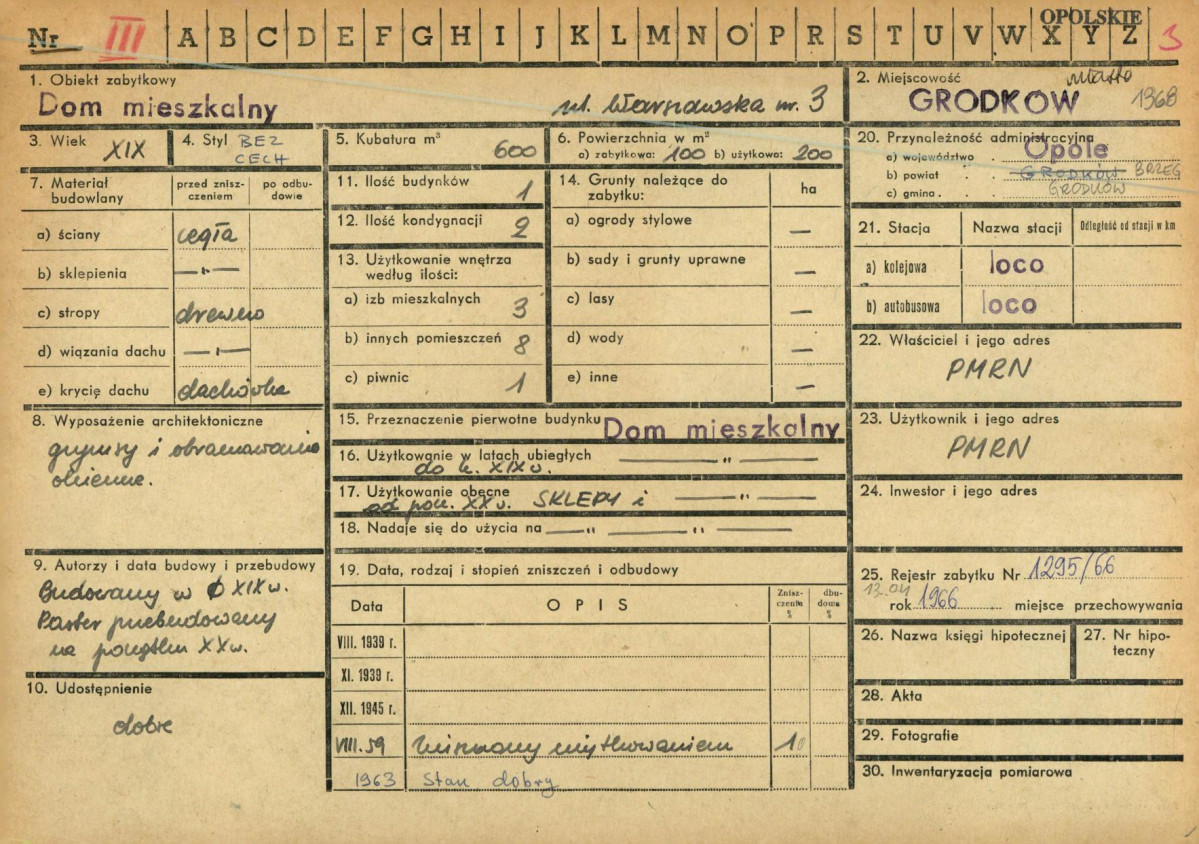 Nr III A B C D E F G H I J K L M N O P R S T U V W X Y Z OPOLSKIE 3
1. Obiekt zabytkowy
Dom mieszkalny ul. Warszawska nr. 3
2. Miejscowość miasto
GRODKÓW 1968
3. Wiek XIX
4. Styl BEZ CECH
5. Kubatura m³ 600
6. Powierzchnia w m²
a) zabytkowa: 100 b) użytkowa: 200
20. Przynależność administracyjna
a) województwo Opole
b) powiat GRODKÓW BRZEG
c) gmina GRODKÓW
7. Materiał budowlany
przed zniszczeniem
po odbudowie
a) ściany cegła
b) sklepienia — " —
c) stropy drewno
d) wiązania dachu — " —
e) krycię dachu dachówka
11. Ilość budynków 1
12. Ilość kondygnacji 2
13. Użytkowanie wnętrza
według ilości:
a) izb mieszkalnych 3
b) innych pomieszczeń 8
c) piwnic 1
14. Grunty należące do
zabytku: ha
a) ogrody stylowe —
b) sady i grunty uprawne —
c) lasy —
d) wody —
e) inne —
21. Stacja Nazwa stacji Odległość od stacji w km
a) kolejowa loco
b) autobusowa loco
22. Właściciel i jego adres
PMRN
8. Wyposażenie architektoniczne
gzymsy i obramowania
okienne.
15. Przeznaczenie pierwotne budynku Dom mieszkalny
16. Użytkowanie w latach ubiegłych — " —
do k. XIX w.
17. Użytkowanie obecne SKLEPY i — " —
od pocz. XX w.
18. Nadaje się do użycia na — " — " —
23. Użytkownik i jego adres
PMRN
24. Inwestor i jego adres
9. Autorzy i data budowy i przebudowy
Budowany w XIX w.
Parter przebudowany
na początku XX w.
10. Udostępnienie
dobre
19. Data, rodzaj i stopień zniszczeń i odbudowy
Data OPIS Zniszczenia % dbudowa %
VIII. 1939 r.
XI. 1939 r.
XII. 1945 r.
VIII.59 zniszczony użytkowaniem 10
1963 Stan dobry
25. Rejestr zabytku Nr 1295/66
13.04
rok 1966 miejsce przechowywania
26. Nazwa księgi hipotecznej
27. Nr hipoteczny
28. Akta
29. Fotografie
30. Inwentaryzacja pomiarowa